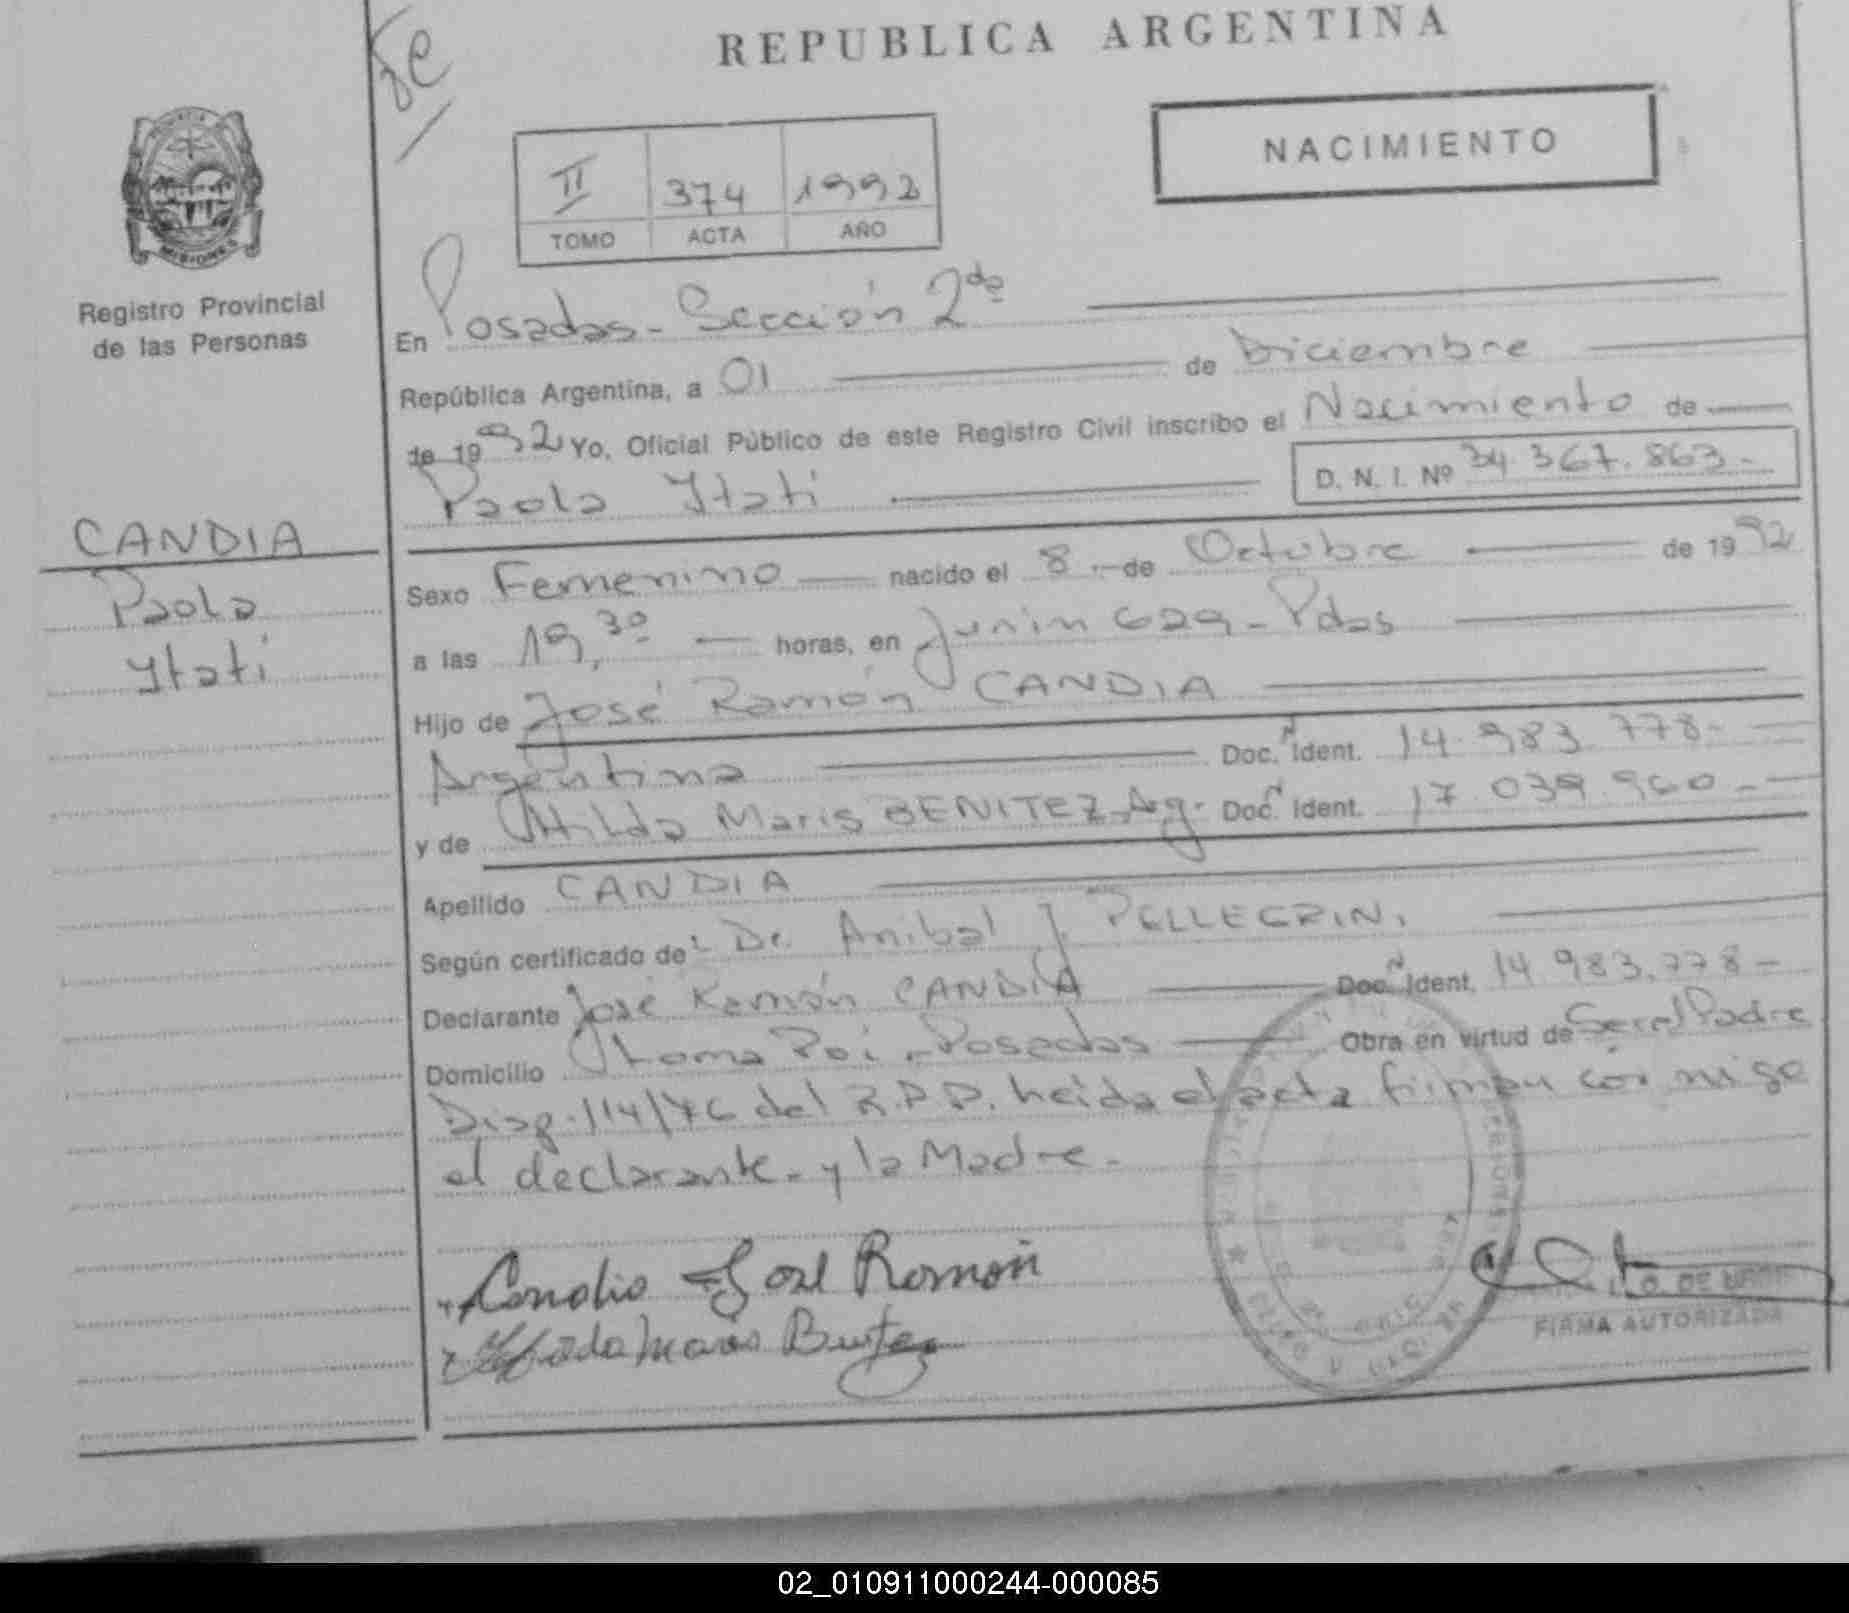 REPUBLICA ARGENTINA
NACIMIENTO
II 374 1992
TOMO ACTA AÑO
PROVINCIA
MISIONES
Registro Provincial
de las Personas
En Posadas - Sección 2da
República Argentina, a 01 de Diciembre
de 1992 Yo, Oficial Público de este Registro Civil inscribo el Nacimiento de
Paola Itatí D. N. I. Nº 34.367.863.-
CANDIA
Paola
Itatí
Sexo Femenino nacido el 8 de Octubre de 1992
a las 19,30 horas, en Junin 629 - Pdas
Hijo de José Ramón CANDIA
Argentina Doc. Ident. 14.983.778-
y de Hilda Maris BENITEZ - Arg. Doc. Ident. 17.039.960.-
Apellido CANDIA
Según certificado de: Dr. Anibal J. PELLEGRINI
Declarante José Ramón CANDIA Doc. Ident. 14.983.778-
Domicilio Posadas Obra en virtud de Ser el Padre
Disp. 114/76 del R.P.P. Leída el acta firman conmigo
el declarante - y la Madre -
Candia José Ramón
Maris Benitez
FIRMA AUTORIZADA
02_010911000244-000085